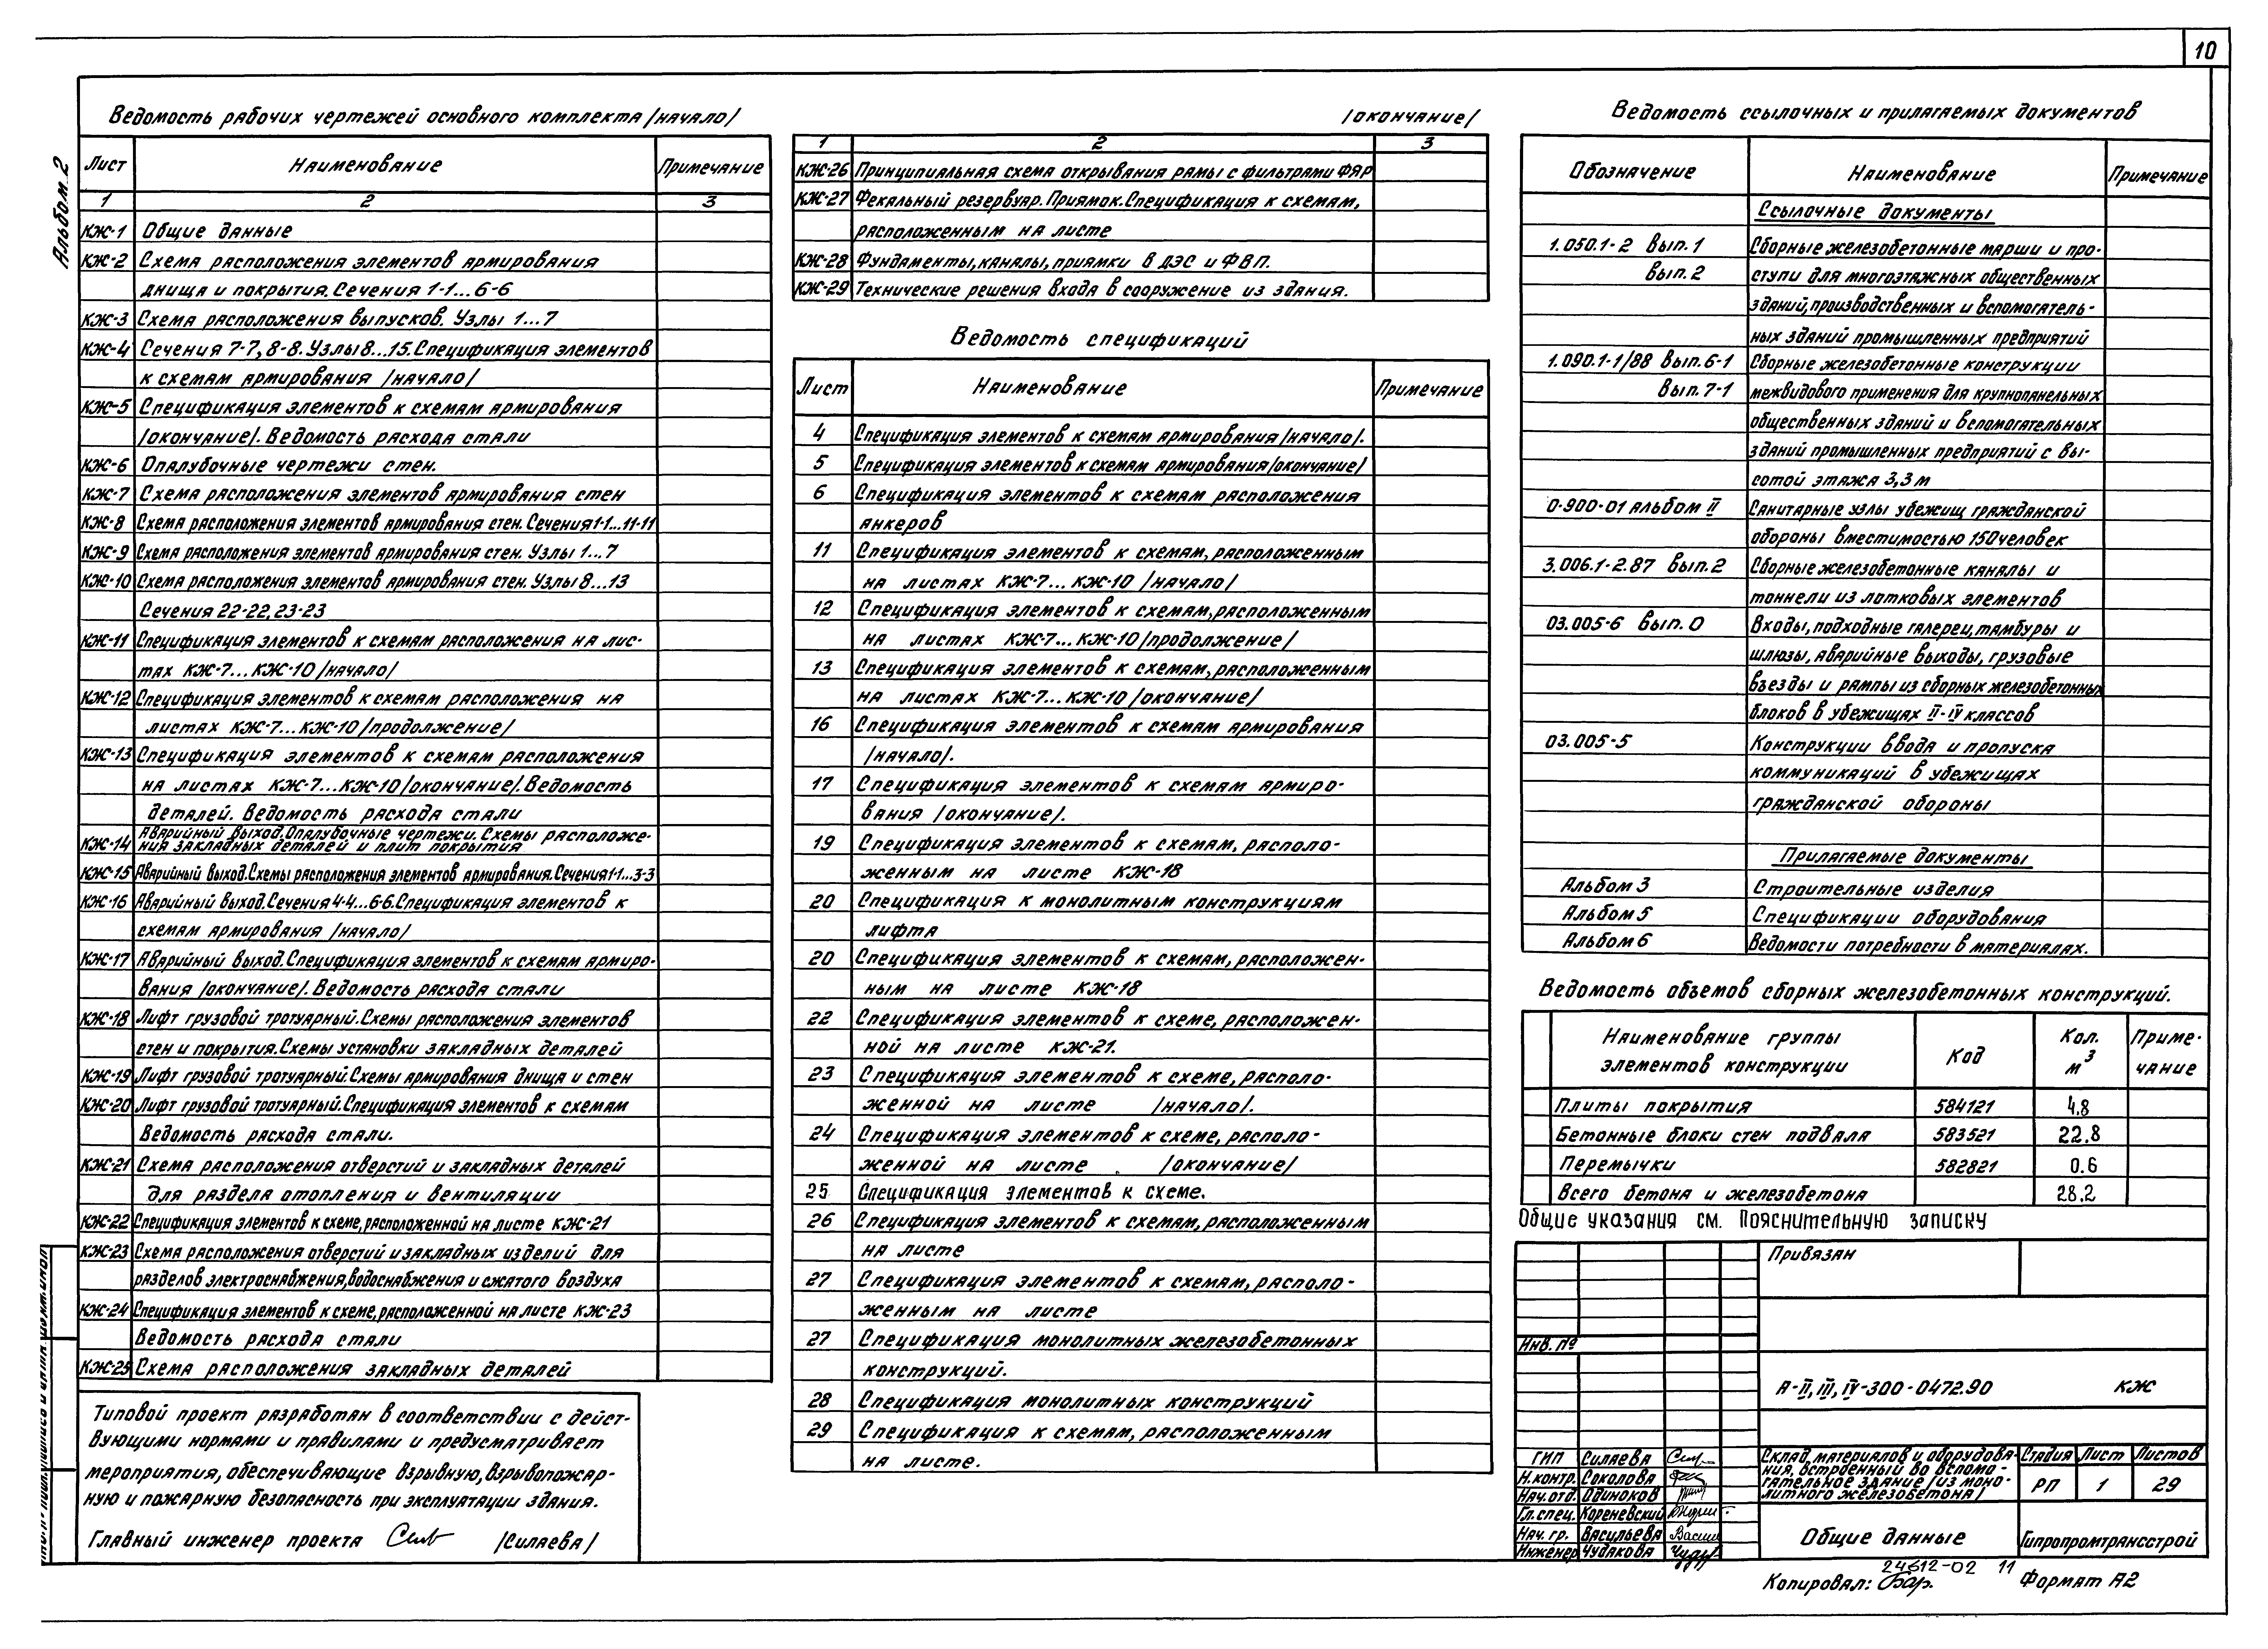 10
Альбом 2
Ведомость рабочих чертежей основного комплекта /начало/
Лист Наименование Примечание
1 2 3
КЖ-1 Общие данные
КЖ-2 Схема расположения элементов армирования
днища и покрытия. Сечения 1-1...6-6
КЖ-3 Схема расположения выпусков. Узлы 1...7
КЖ-4 Сечения 7-7, 8-8. Узлы 8...15. Спецификация элементов
к схемам армирования /начало/
КЖ-5 Спецификация элементов к схемам армирования
/окончание/. Ведомость расхода стали
КЖ-6 Опалубочные чертежи стен.
КЖ-7 Схема расположения элементов армирования стен
КЖ-8 Схема расположения элементов армирования стен. Сечения 1-1...11-11
КЖ-9 Схема расположения элементов армирования стен. Узлы 1...7
КЖ-10 Схема расположения элементов армирования стен. Узлы 8...13
Сечения 22-22, 23-23
КЖ-11 Спецификация элементов к схемам расположения на лис-
тах КЖ-7...КЖ-10 /начало/
КЖ-12 Спецификация элементов к схемам расположения на
листах КЖ-7...КЖ-10 /продолжение/
КЖ-13 Спецификация элементов к схемам расположения
на листах КЖ-7...КЖ-10 /окончание/. Ведомость
деталей. Ведомость расхода стали
КЖ-14 Аварийный выход. Опалубочные чертежи. Схемы расположе-
ния закладных деталей и плит покрытия
КЖ-15 Аварийный выход. Схемы расположения элементов армирования. Сечения 1-1...3-3
КЖ-16 Аварийный выход. Сечения 4-4...6-6. Спецификация элементов к
схемам армирования /начало/
КЖ-17 Аварийный выход. Спецификация элементов к схемам армиро-
вания /окончание/. Ведомость расхода стали
КЖ-18 Лифт грузовой тротуарный. Схемы расположения элементов
стен и покрытия. Схемы установки закладных деталей
КЖ-19 Лифт грузовой тротуарный. Схемы армирования днища и стен
КЖ-20 Лифт грузовой тротуарный. Спецификация элементов к схемам
Ведомость расхода стали.
КЖ-21 Схема расположения отверстий и закладных деталей
для раздела отопления и вентиляции
КЖ-22 Спецификация элементов к схеме, расположенной на листе КЖ-21
КЖ-23 Схема расположения отверстий и закладных изделий для
разделов электроснабжения, водоснабжения и сжатого воздуха
КЖ-24 Спецификация элементов к схеме, расположенной на листе КЖ-23
Ведомость расхода стали
КЖ-25 Схема расположения закладных деталей
Типовой проект разработан в соответствии с дейст-
вующими нормами и правилами и предусматривает
мероприятия, обеспечивающие взрывную, взрывопожар-
ную и пожарную безопасность при эксплуатации здания.
Главный инженер проекта /Силаева/
/окончание/
1 2 3
КЖ-26 Принципиальная схема открывания рамы с фильтрами ФЯР
КЖ-27 Фекальный резервуар. Приямок. Спецификация к схемам,
расположенным на листе
КЖ-28 Фундаменты, каналы, приямки в ДЭС и ФВП.
КЖ-29 Технические решения входа в сооружение из здания.
Ведомость спецификаций
Лист Наименование Примечание
4 Спецификация элементов к схемам армирования /начало/.
5 Спецификация элементов к схемам армирования /окончание/
6 Спецификация элементов к схемам расположения
анкеров
11 Спецификация элементов к схемам, расположенным
на листах КЖ-7...КЖ-10 /начало/
12 Спецификация элементов к схемам, расположенным
на листах КЖ-7...КЖ-10 /продолжение/
13 Спецификация элементов к схемам, расположенным
на листах КЖ-7...КЖ-10 /окончание/
16 Спецификация элементов к схемам армирования
/начало/.
17 Спецификация элементов к схемам армиро-
вания /окончание/.
19 Спецификация элементов к схемам, располо-
женным на листе КЖ-18
20 Спецификация к монолитным конструкциям
лифта
20 Спецификация элементов к схемам, расположен-
ным на листе КЖ-18
22 Спецификация элементов к схеме, расположен-
ной на листе КЖ-21.
23 Спецификация элементов к схеме, располо-
женной на листе /начало/.
24 Спецификация элементов к схеме, располо-
женной на листе /окончание/
25 Спецификация элементов к схеме.
26 Спецификация элементов к схемам, расположенным
на листе
27 Спецификация элементов к схемам, располо-
женным на листе
27 Спецификация монолитных железобетонных
конструкций.
28 Спецификация монолитных конструкций
29 Спецификация к схемам, расположенным
на листе.
Ведомость ссылочных и прилагаемых документов
Обозначение Наименование Примечание
Ссылочные документы
1.050.1-2 Вып.1 Сборные железобетонные марши и про-
вып.2 ступи для многоэтажных общественных
зданий, производственных и вспомогатель-
ных зданий промышленных предприятий
1.090.1-1/88 Вып.6-1 Сборные железобетонные конструкции
Вып.7-1 межвидового применения для крупнопанельных
общественных зданий и вспомогательных
зданий промышленных предприятий с вы-
сотой этажа 3,3 м
0-900-01 альбом II Санитарные узлы убежищ гражданской
обороны вместимостью 150 человек
3.006.1-2.87 вып.2 Сборные железобетонные каналы и
тоннели из лотковых элементов
03.005-6 вып.0 Входы, подходные галереи, тамбуры и
шлюзы, аварийные выходы, грузовые
въезды и рампы из сборных железобетонных
блоков в убежищах II-IV классов
03.005-5 Конструкции ввода и пропуска
коммуникаций в убежищах
гражданской обороны
Прилагаемые документы
Альбом 3 Строительные изделия
Альбом 5 Спецификации оборудования
Альбом 6 Ведомости потребности в материалах.
Ведомость объемов сборных железобетонных конструкций.
Наименование группы элементов конструкции Код Кол. м3 Приме-чание
Плиты покрытия 584121 4.8
Бетонные блоки стен подвала 583521 22.8
Перемычки 582821 0.6
Всего бетона и железобетона 28.2
Общие указания см. Пояснительную записку
Привязан
Инв. №
А-II, III, IV-300-0472.90 КЖ
ГИП Силаева
Н.контр. Соколова
Нач.отд. Одиноков
Гл.спец. Кореневский
Нач. гр. Васильева
Инженер Чудакова
Склад материалов и оборудова-
ния, встроенный во вспомо-
гательное здание /из моно-
литного железобетона/
Стадия Лист Листов
РП 1 29
Общие данные
Гипропромтрансстрой
24612-02 11
Копировал: Формат А2